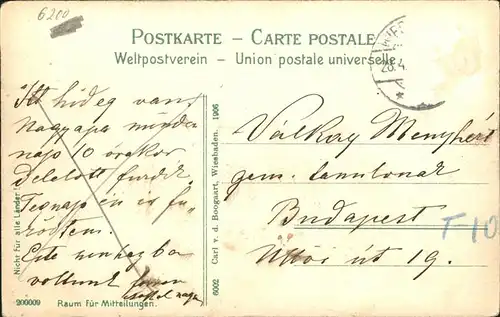 6200
POSTKARTE – CARTE POSTALE
Weltpostverein – Union postale universelle
28.4.
Itt hideg van,
Nagyapa minden
nap 10 órakor
Delelőtt fürdik
Tegnap én is fü-
rödtem.
Este szinházba
voltunk
Nicht für alle Länder!
200009 Raum für Mitteilungen.
6002 Carl v. d. Boogaart, Wiesbaden. 1906
Válkay Menyhért
gem. tanulonak
Budapest
Üllői út 19.
T-10